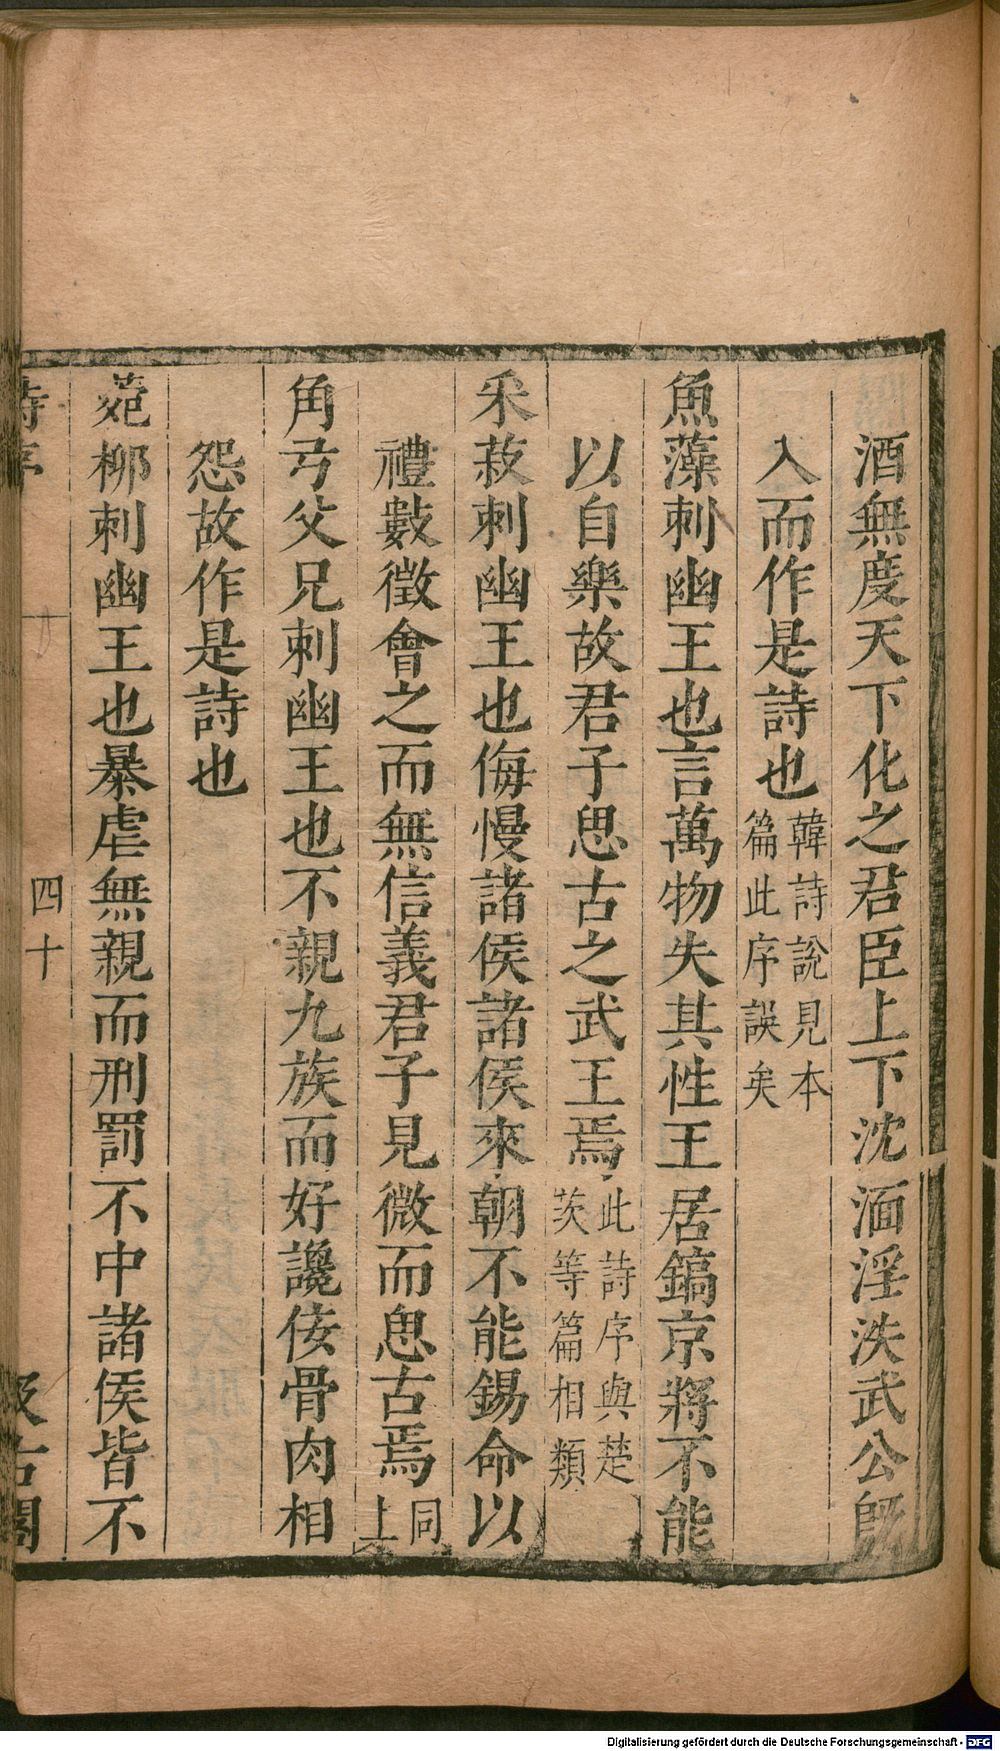 酒無度天下化之君臣上下沈湎淫泆武公旣
入而作是詩也韓詩說見本
篇此序誤矣
魚藻刺幽王也言萬物失其性王居鎬京將不能
以自樂故君子思古之武王焉此詩序與楚
茨等篇相類
采菽刺幽王也侮慢諸侯諸侯來朝不能錫命以
禮數徵會之而無信義君子見微而思古焉同
上
角弓父兄刺幽王也不親九族而好讒佞骨肉相
怨故作是詩也
菀柳刺幽王也暴虐無親而刑罰不中諸侯皆不
詩序
四十
汲古閣
Digitalisierung gefördert durch die Deutsche Forschungsgemeinschaft - DFG